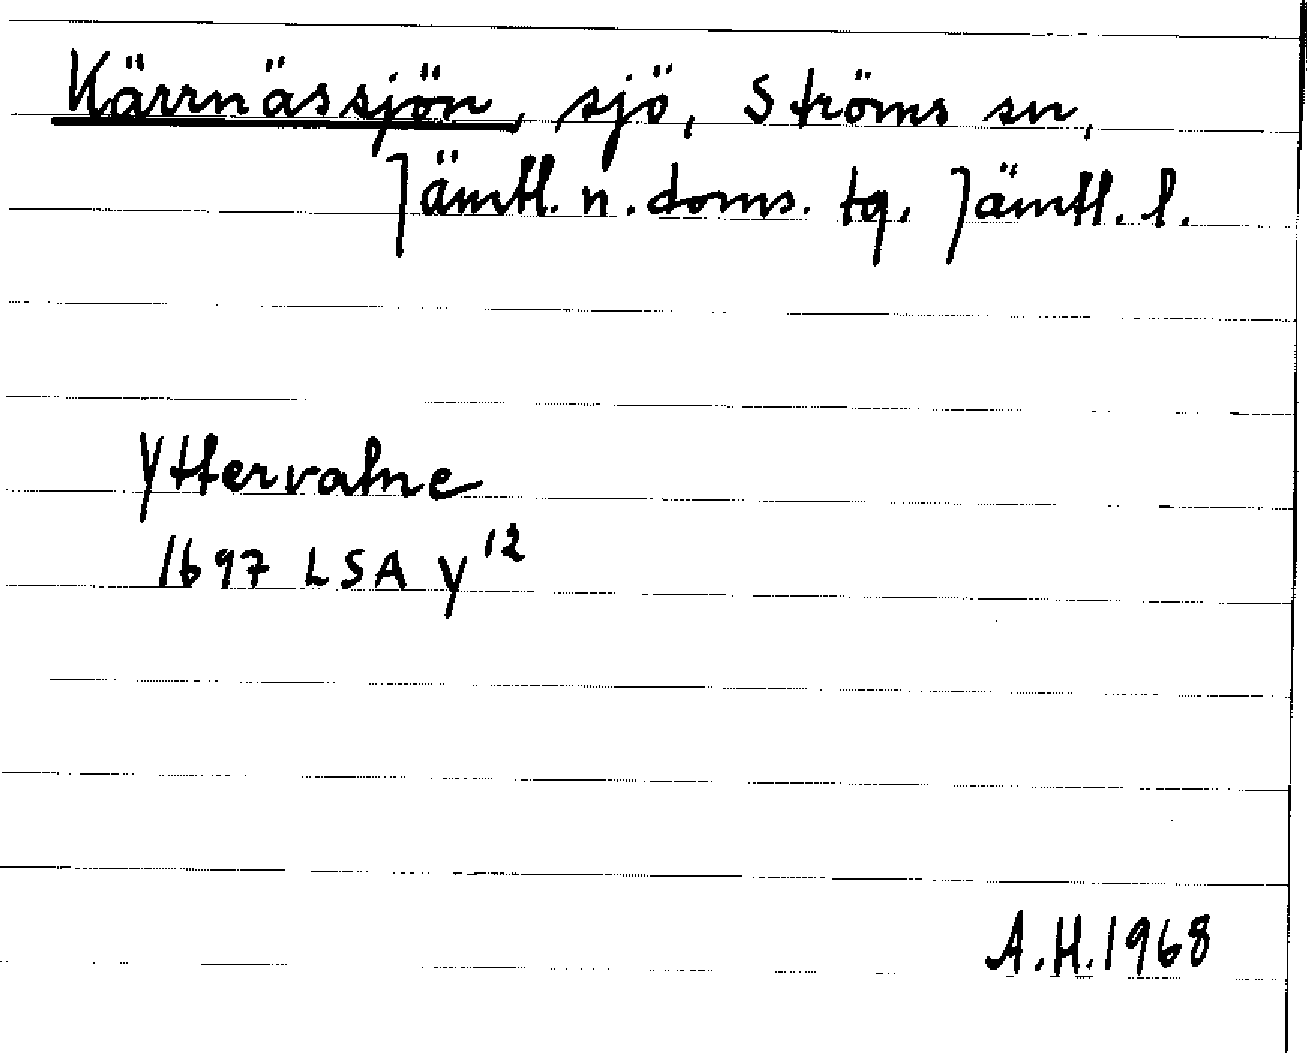 Kärrnässjön, sjö, Ströms sn,
Jämtl. n. doms. tg. Jämtl. l.
Yttervalne
1697 LSA Y¹²
A.H. 1968